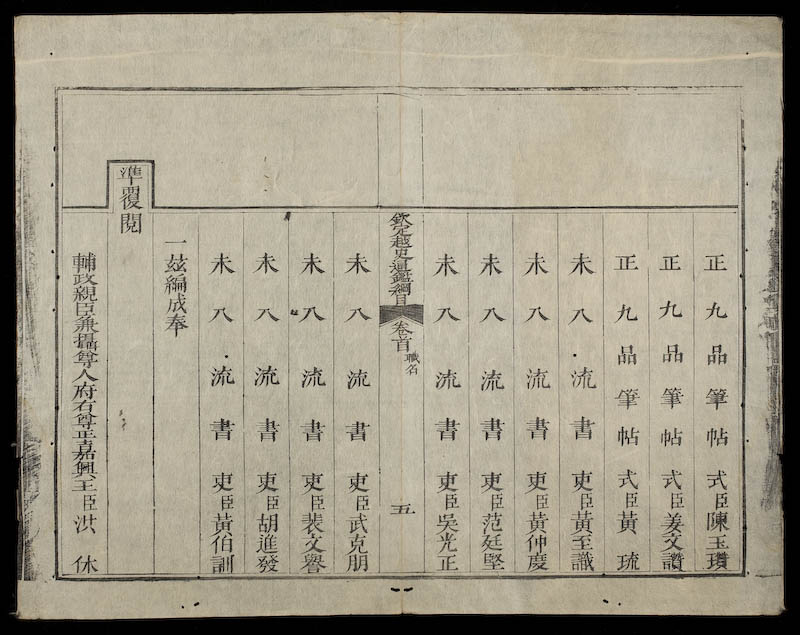 正九品筆帖式臣陳玉瓚
正九品筆帖式臣姜文讚
正九品筆帖式臣黃琉
未入流書吏臣黃至識
未入流書吏臣黃仲慶
未入流書吏臣范廷堅
未入流書吏臣吳光正
欽定越史通鑑綱目 卷首 職名 五
未入流書吏臣武克朋
未入流書吏臣裴文譽
未入流書吏臣胡進發
未入流書吏臣黃伯訓
一玆編成奉
準覆閱
輔政親臣兼攝尊人府右尊正嘉興王臣洪休